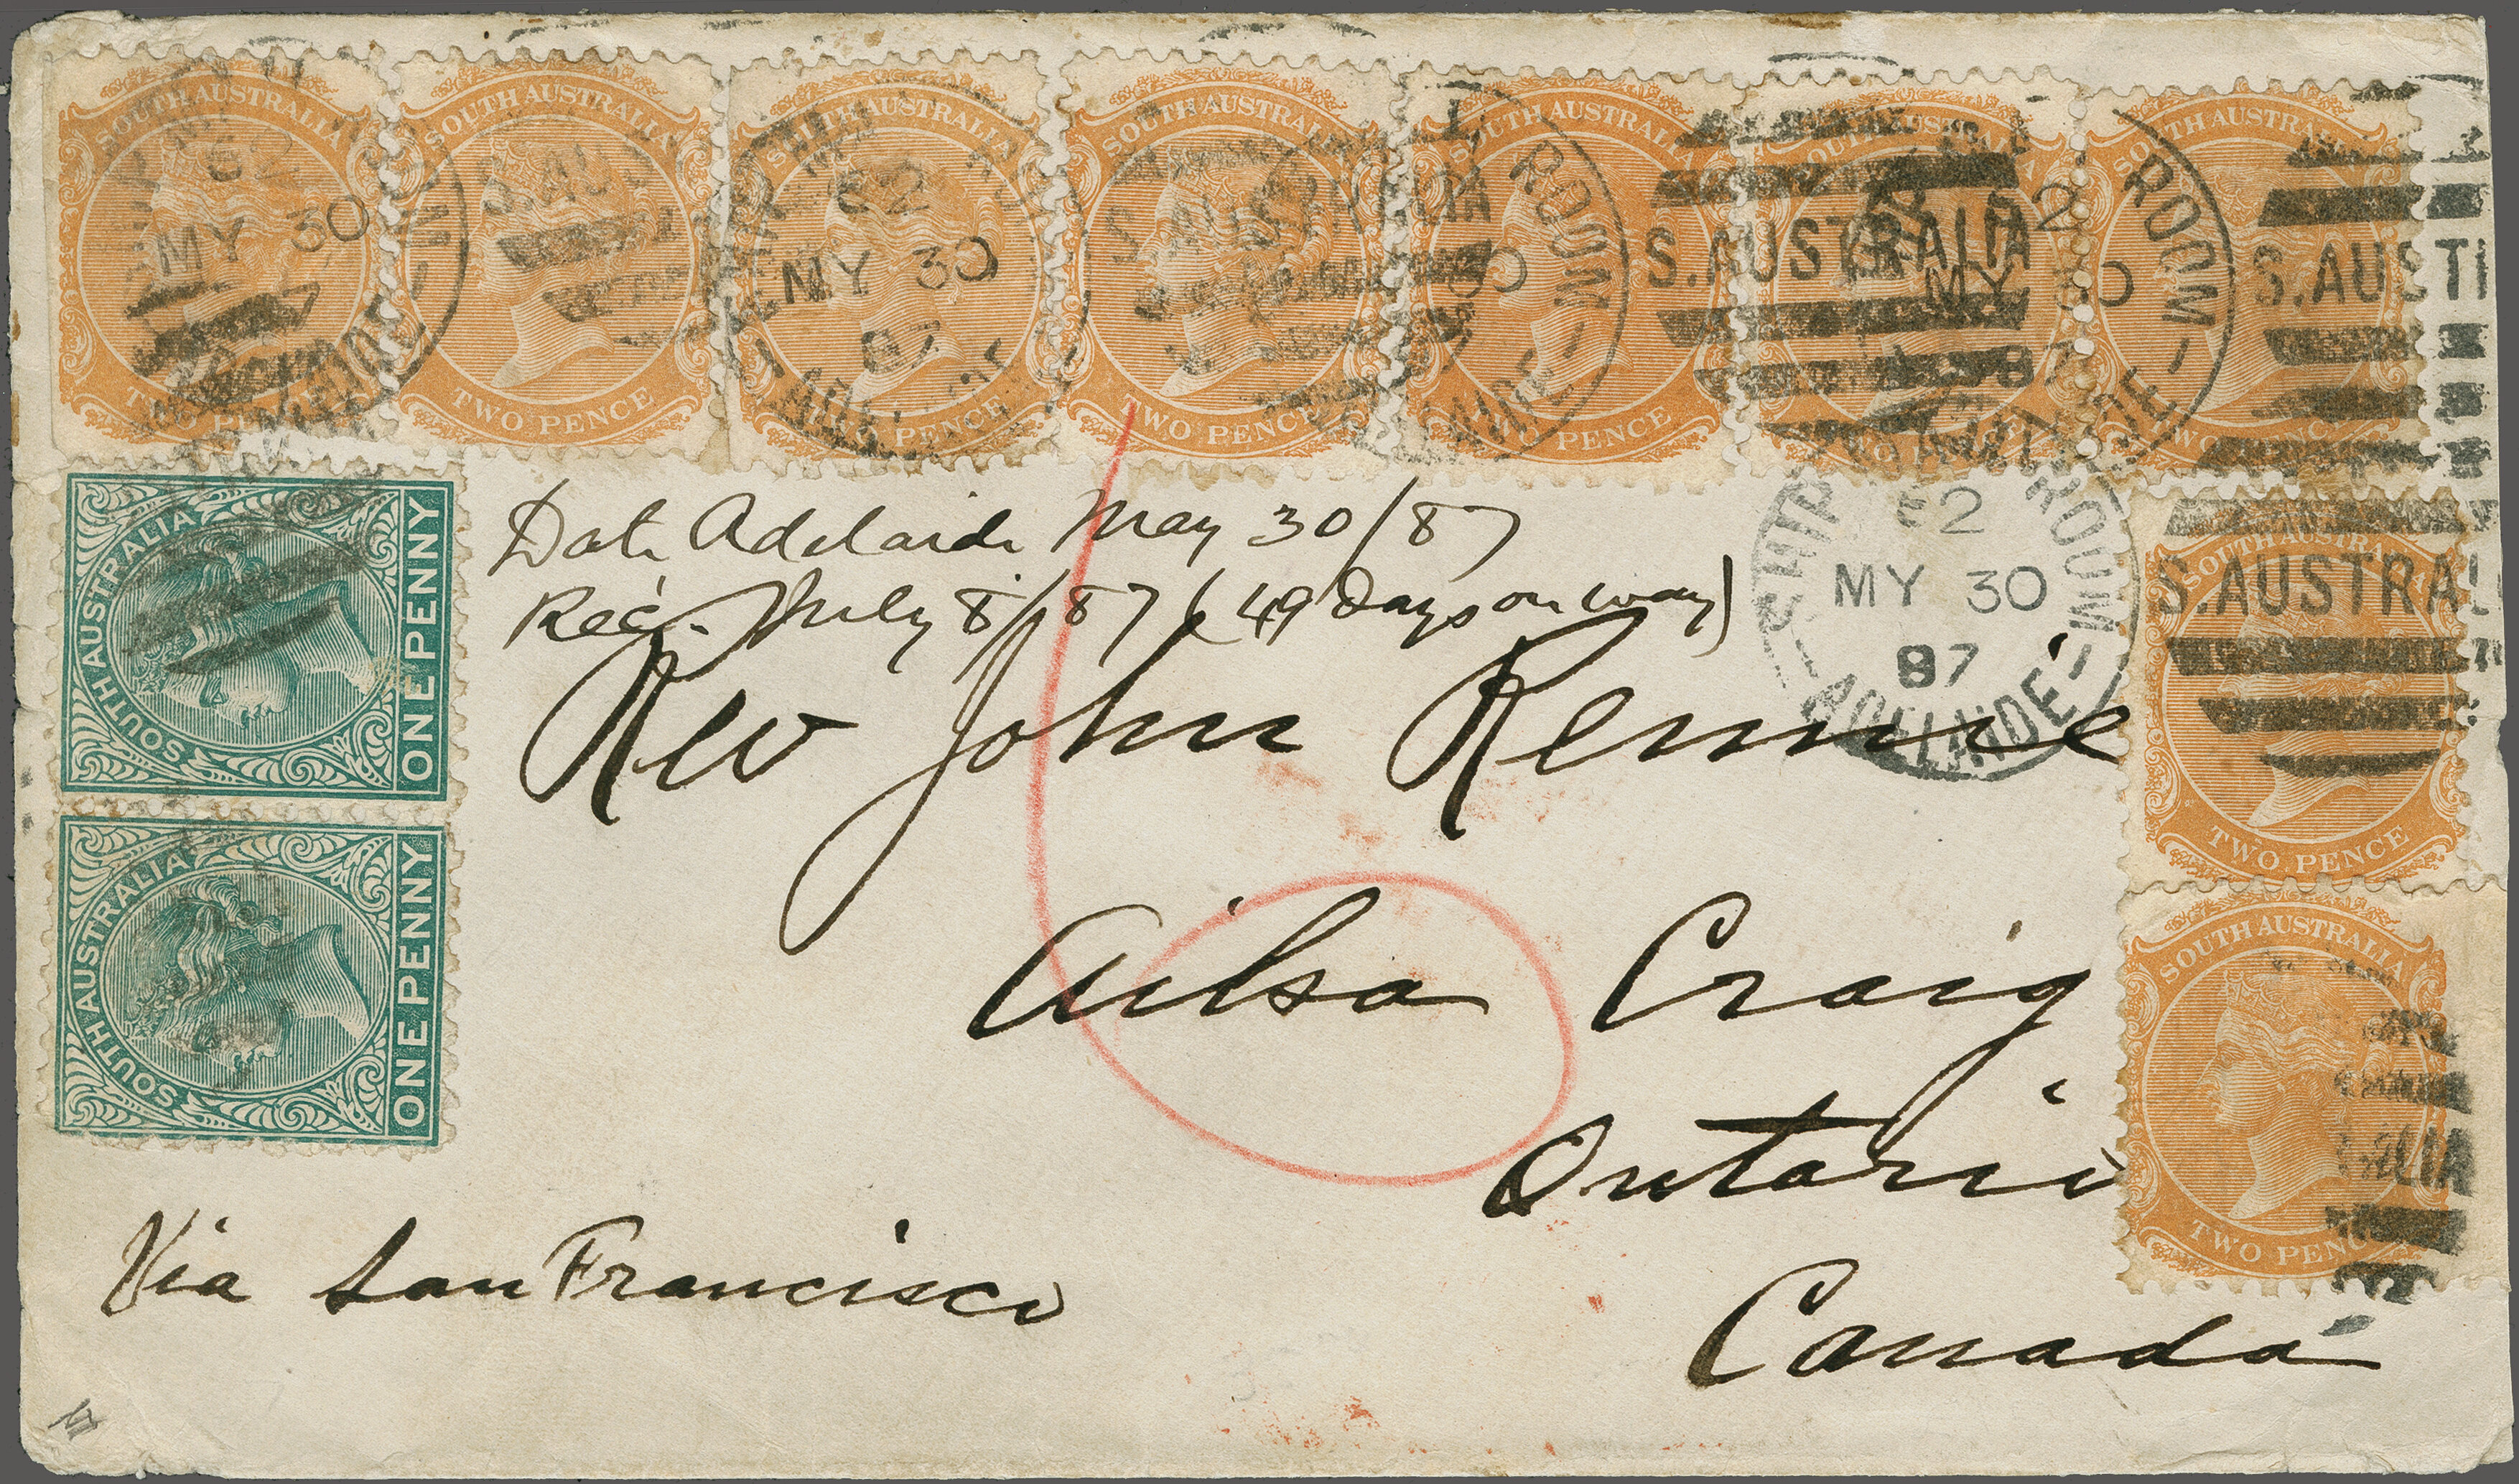 SOUTH AUSTRALIA SOUTH AUSTRALIA SOUTH AUSTRALIA SOUTH AUSTRALIA SOUTH AUSTRALIA SOUTH AUSTRALIA SOUTH AUSTRALIA
62 MY 30 ADELAIDE
S.AUS
62 MY 30 87
S.AUSTRALIA
ROOM
S.AUSTRALIA
62 MY 30 87 ROOM
S.AUST
TWO PENCE TWO PENCE TWO PENCE TWO PENCE TWO PENCE TWO PENCE TWO PENCE
SOUTH AUSTRALIA ONE PENNY
SOUTH AUSTRALIA ONE PENNY
Date Adelaide May 30/87
Rec'd. July 8/87 (49 Days on way)
SHIP ROOM
62
MY 30
87
-ADELAIDE-
SOUTH AUSTRALIA
S.AUSTRAL
TWO PENCE
SOUTH AUSTRALIA
ALIA
TWO PENCE
Rev John Rennie
Ailsa Craig
Ontario
Canada
Via San Francisco